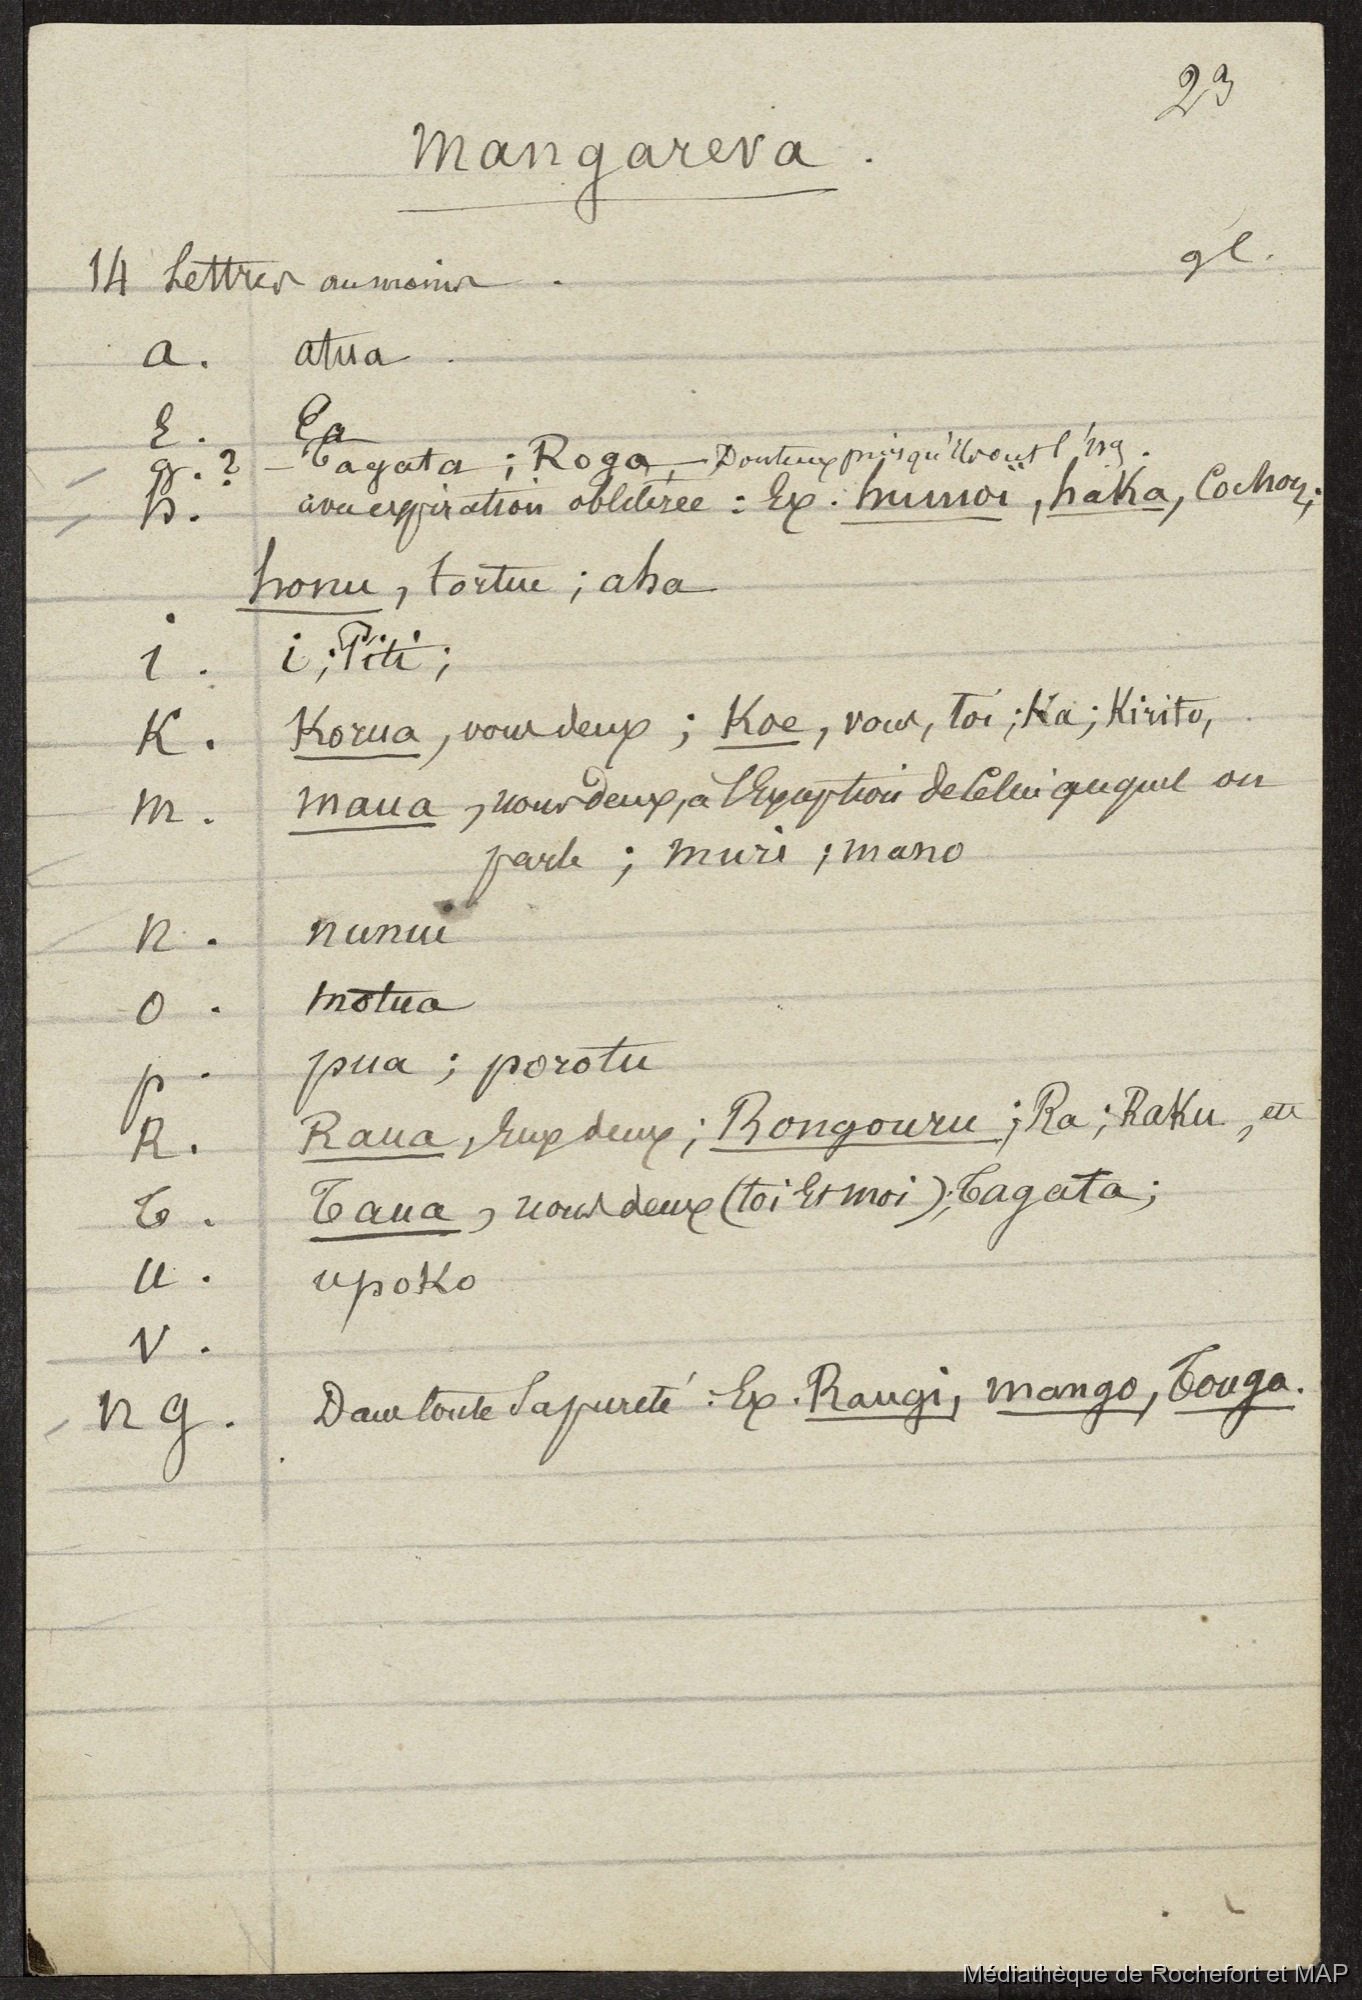 23
Mangareva.
gl.
14 Lettres au moins.
a. atua.
E. Ea
g.? - Tagata ; Roga, - Douteux puisqu'ils ont l'ng.
h. avec aspiration oblitérée : Ex. humoï, haka, Cochon;
honu, tortue ; aha
i. i ; Piti ;
K. Korua, vous deux ; Koe, vous, toi ; Ka ; Kirito,
m. maua, nous deux, à l'Exception de Celui auquel on
parle ; muri ; mano
n. nunui
o. motua
p. pua ; porotu
R. Raua, Eux deux ; Rongouru ; Ra ; Raku, etc
T. Taua, nous deux (toi Et moi) ; Tagata ;
u. upoko
v.
ng. Dans toute sa pureté : Ex. Rangi, mango, Tonga.
Médiathèque de Rochefort et MAP